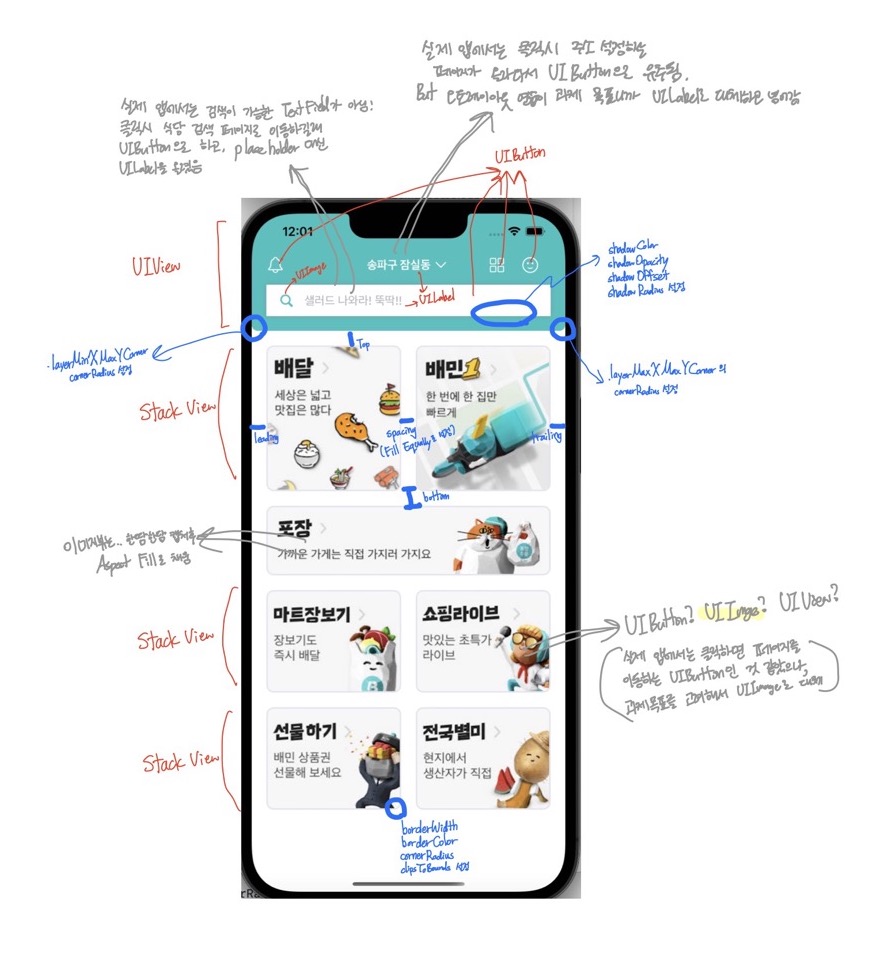 실제 앱에서는 클릭시 주소 설정하는
페이지가 올라와서 UIButton으로 유추됨.
But 오토레이아웃 연습이 과제 목표니까 UILabel로 대체하고 넘어감
실제 앱에서는 검색이 가능한 TextField가 아님!
클릭시 식당 검색 페이지로 이동하길래
UIButton으로 하고, placeholder 대신
UILabel을 얹었음
UIButton
UIView
12:01
송파구 잠실동
UIImage
샐러드 나와라! 뚝딱!!
UILabel
shadowColor
shadowOpacity
shadowOffset
shadowRadius 설정
.layerMinXMaxYCorner
cornerRadius 설정
.layerMaxXMaxYCorner 의
cornerRadius 설정
Top
Stack View
배달
세상은 넓고
맛집은 많다
배민1
한 번에 한 집만
빠르게
leading
spacing
(Fill Equally로
trailing
bottom
포장
가까운 가게는 직접 가지러 가지요
이미지뷰는..
Aspect Fill로 채움
Stack View
마트장보기
장보기도
즉시 배달
쇼핑라이브
맛있는 초특가
라이브
UIButton? UIImage? UIView?
실제 앱에서는 클릭하면 페이지를
이동하는 UIButton인 것 같았으나,
과제목표를 고려해서 UIImage로 대체
Stack View
선물하기
배민 상품권
선물해 보세요
전국별미
현지에서
생산자가 직접
borderWidth
borderColor
cornerRadius
clipsToBounds 설정